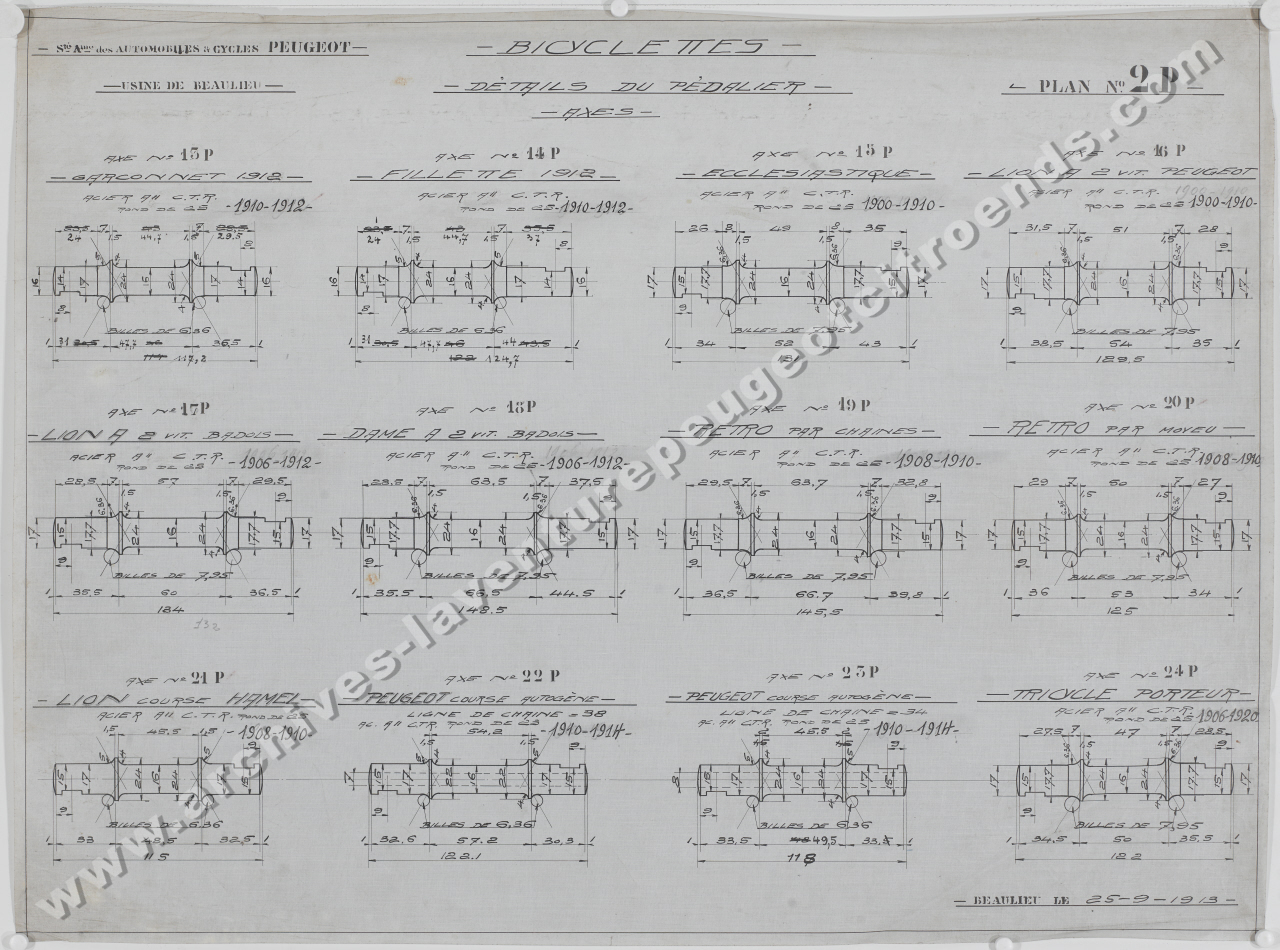 — Sté Ame des AUTOMOBILES & CYCLES PEUGEOT —
— USINE DE BEAULIEU —
— BICYCLETTES —
— DÉTAILS DU PÉDALIER —
— AXES —
— PLAN No 2 P —
AXE No 13 P
— GARÇONNET 1912 —
ACIER AII C.T.R.
ROND DE 25 -1910-1912-
24 7 44,7 7 29,5
1,5 1,5
16 14 17 24 16 24 17 14 16
BILLES DE 6,36
31 47,7 36,5 1
117,2
AXE No 14 P
— FILLETTE 1912 —
ACIER AII C.T.R.
ROND DE 25 -1910-1912-
24 7 44,7 7 37
1,5 1,5
16 14 17 24 16 24 17 14 16
BILLES DE 6,36
31 47,7 44 1
124,7
AXE No 15 P
— ECCLESIASTIQUE —
ACIER AII C.T.R.
ROND DE 25 -1900-1910-
26 8 49 8 35
1,5 1,5
17 15 17,7 24 16 24 17,7 15 17
BILLES DE 7,95
1 34 52 43 1
131
AXE No 16 P
— LION A 2 VIT. PEUGEOT
ACIER AII C.T.R. 1900-1910
ROND DE 25 -1900-1910-
31,5 7 51 7 28
1,5 1,5
17 15 17,7 24 16 24 17,7 15 17
BILLES DE 7,95
1 38,5 54 35 1
129,5
AXE No 17 P
— LION A 2 VIT. BADOIS —
ACIER AII C.T.R.
ROND DE 25 -1906-1912-
28,5 7 57 7 29,5
1,5 1,5
17 15 17,7 24 16 24 17,7 15 17
BILLES DE 7,95
1 35,5 60 36,5 1
134
132
AXE No 18 P
— DAME A 2 VIT. BADOIS —
ACIER AII C.T.R.
ROND DE 25 -1906-1912-
28,5 7 63,5 7 37,5
1,5 1,5
17 15 17,7 24 16 24 17,7 15 17
BILLES DE 7,95
1 35,5 66,5 44.5 1
148.5
AXE No 19 P
— RETRO PAR CHAINES —
ACIER AII C.T.R.
ROND DE 25 -1908-1910-
29,5 7 63,7 7 32,8
1,5 1,5
17 15 17,7 24 16 24 17,7 15 17
BILLES DE 7,95
1 36,5 66.7 39,8 1
145,5
AXE No 20 P
— RETRO PAR MOYEU —
ACIER AII C.T.R.
ROND DE 25 -1908-1910
29 7 50 7 27
1,5 1,5
17 15 17,7 24 16 24 17,7 15 17
BILLES DE 7,95
1 36 53 34 1
125
AXE No 21 P
— LION COURSE HAMEL
ACIER AII C.T.R. ROND DE 25
-1908-1910-
1,5 45,5 1,5
15 17 24 16 24 17 15
BILLES DE 6.36
1 33 48,5 32,5 1
115
AXE No 22 P
— PEUGEOT COURSE AUTOGÈNE —
LIGNE DE CHAINE = 38
AC. AII CTR ROND DE 25 -1910-1914-
1,5 54.2 1,5
7 15 17 22 16 22 17 15
BILLES DE 6,36
1 32,6 57.2 30,3 1
122.1
AXE No 23 P
— PEUGEOT COURSE AUTOGÈNE —
LIGNE DE CHAINE = 34
AC. AII CTR. ROND DE 25 -1910-1914-
45,5
8 15 17 24 16 24 17 15
BILLES DE 6,36
1 33,5 49,5 33,5 1
118
AXE No 24 P
— TRICYCLE PORTEUR —
ACIER AII C.T.R.
ROND DE 25 1906-1920
27,5 7 47 7 28,5
1,5 1,5
17 15 17,7 24 16 24 17,7 15 17
BILLES DE 7,95
1 34,5 50 35.5 1
122
— BEAULIEU LE 25-9-1913 —
www.archives-laventurepeugeotcitroends.com